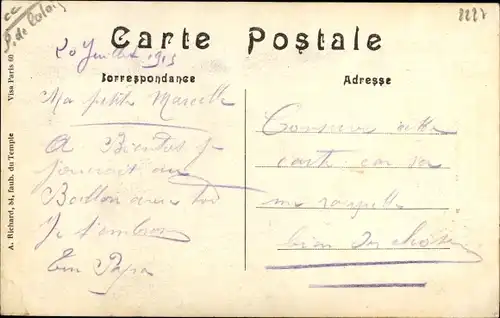 8227
Carte Postale
20 Juillet 1915
Correspondance
Adresse
Ma petite Marcelle
A Bientot je
jouerait au
Ballon avec toi
Je t'embrasse
Ton Papa
Conserve cette
carte car sa
me rappelle
bien des choses
A. Richard, 84, faub. du Temple Visa Paris 60